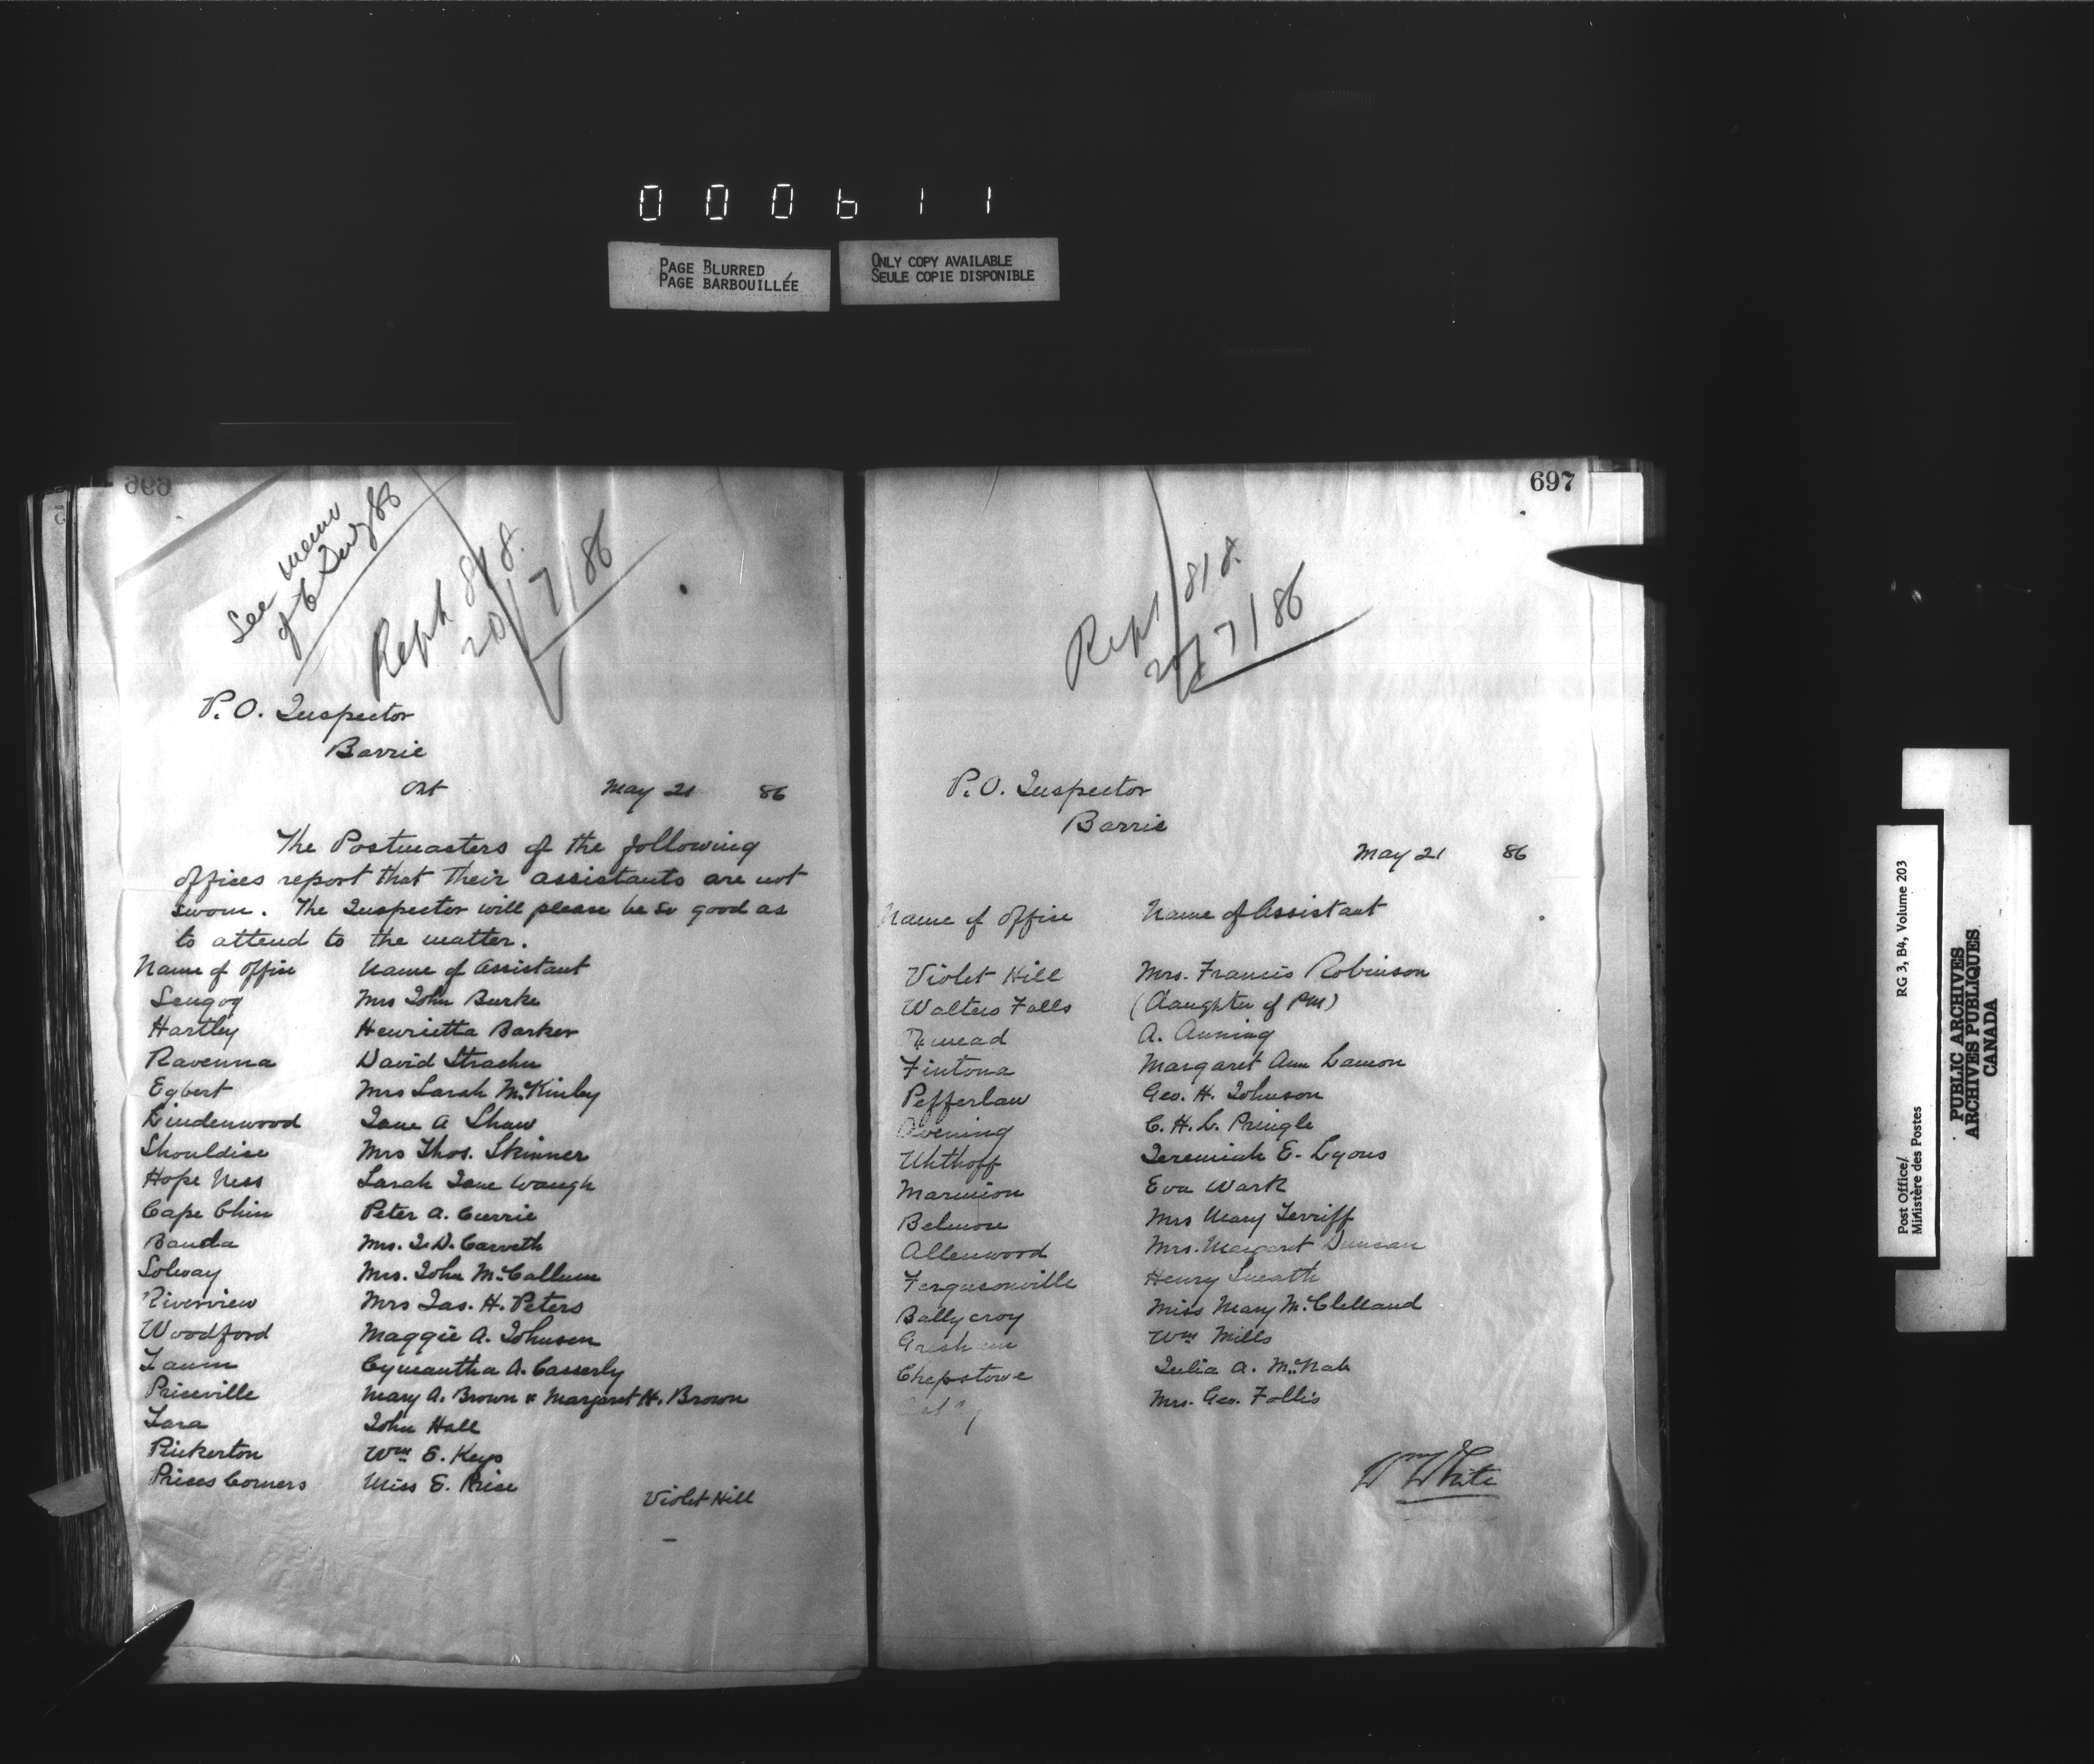 000611
PAGE BLURRED
PAGE BARBOUILLÉE
ONLY COPY AVAILABLE
SEULE COPIE DISPONIBLE
See memo
of 6 July 86
Rept 818.
20/7/86
P. O. Inspector
Barrie
Ont May 21 86
The Postmasters of the following
offices report that their assistants are not
sworn. The Inspector will please be so good as
to attend to the matter.
Name of office Name of Assistant
Scugog Mrs John Burke
Hartley Henrietta Barker
Ravenna David Strachn
Egbert Mrs Sarah McKinley
Lindenwood Jane A Shaw
Shouldice Mrs Thos. Skinner
Hope Ness Sarah Jane Waugh
Cape Chin Peter A. Currie
Banda Mrs. J. D. Carveth
Solway Mrs. John McCallum
Riverview Mrs Jas. H. Peters
Woodford Maggie A. Johnson
Cymantha A. Casserly
Priceville Mary A. Brown & Margaret H. Brown
Tara John Hall
Pinkerton Wm E. Keys
Prices Corners Miss E. Price
Violet Hill
697
Rept 818.
20/7/86
P. O. Inspector
Barrie
May 21 86
Name of office Name of Assistant
Violet Hill Mrs. Francis Robinson
Walters Falls (daughter of PM)
A. Anning
Fintona Margaret Ann Lamon
Pefferlaw Geo. H. Johnson
Avening C. H. L. Pringle
Uhthoff Jeremiah E. Lyons
Marmion Eva Wark
Belmore Mrs Mary Terriff
Allenwood Mrs. Margaret Duncan
Fergusonville Henry Sneath
Ballycroy Miss Mary McClelland
Gresham Wm Mills
Chepstowe Julia A. McNab
Mrs. Geo. Follis
Wm White
Post Office/ RG 3, B4, Volume 203
Ministère des Postes
PUBLIC ARCHIVES
ARCHIVES PUBLIQUES
CANADA